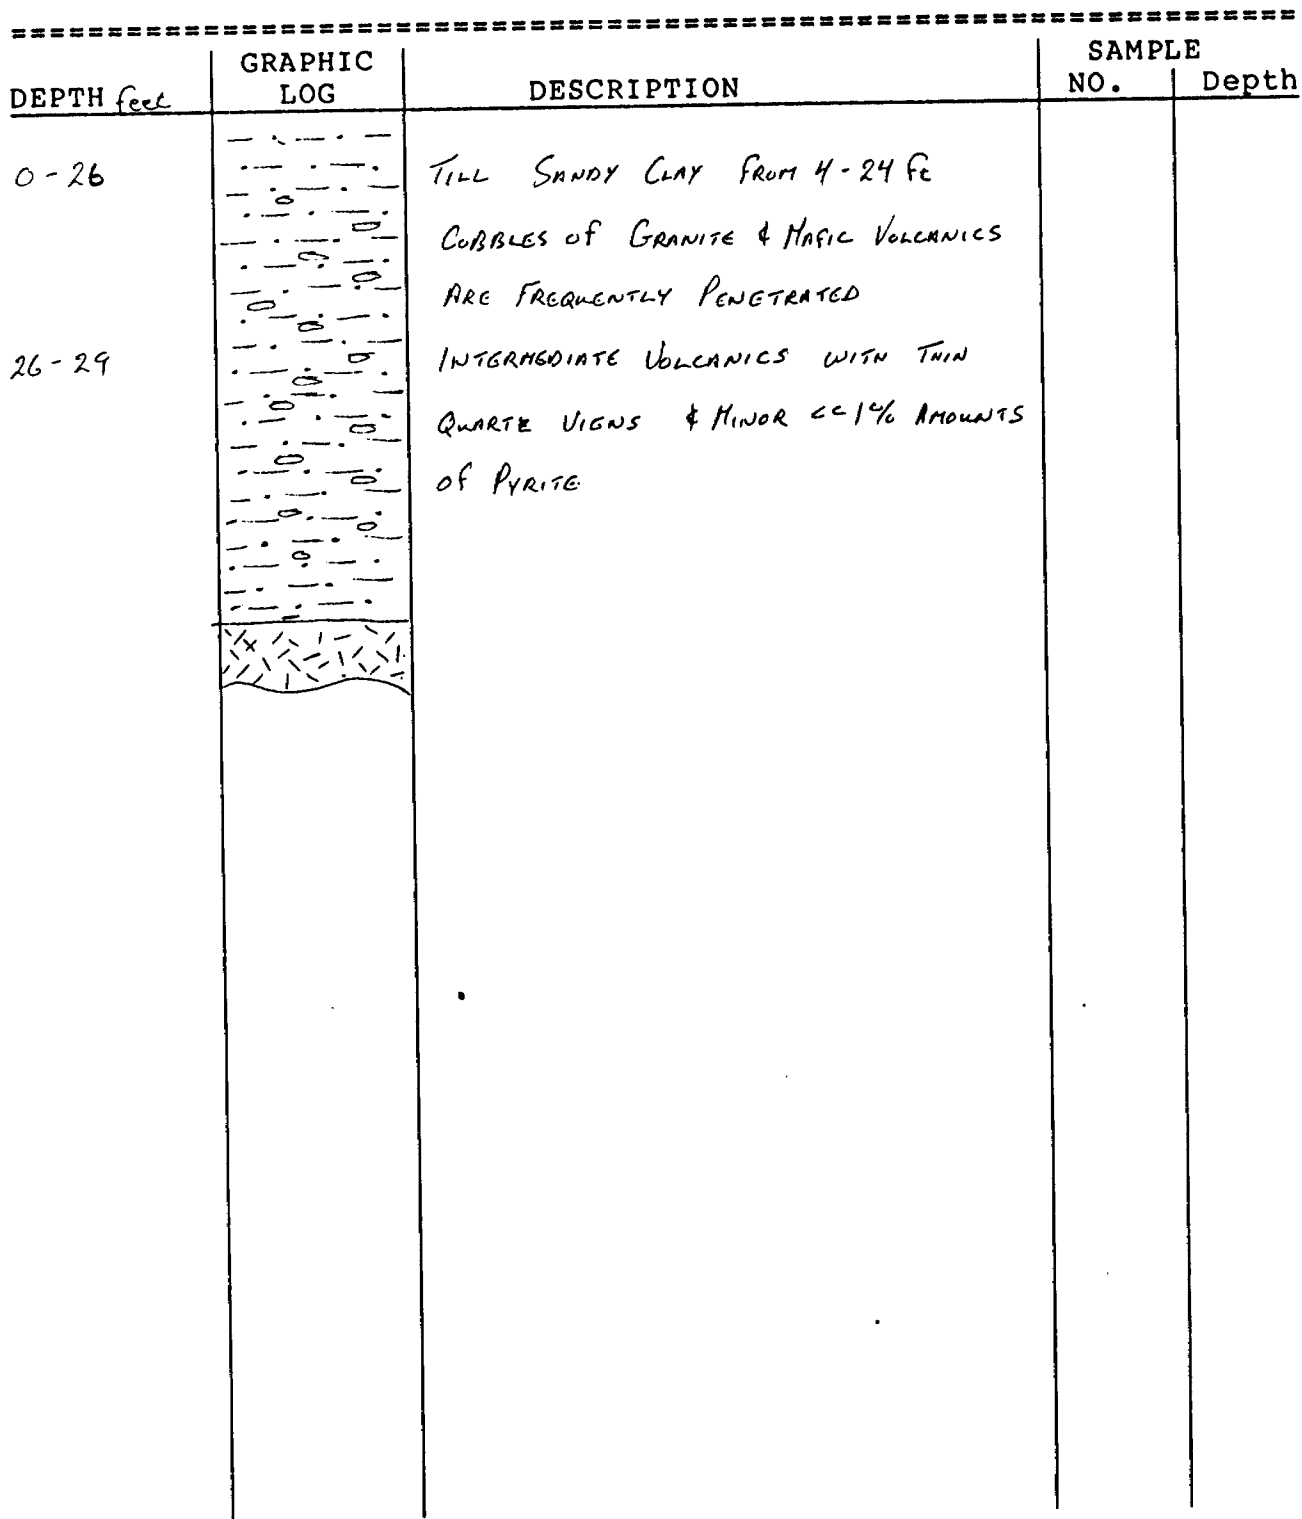 GRAPHIC SAMPLE
DEPTH feet LOG DESCRIPTION NO. Depth
0 - 26 TILL SANDY CLAY FROM 4 - 24 ft
COBBLES of GRANITE & MAFIC VOLCANICS
ARE FREQUENTLY PENETRATED
26 - 29 INTERMEDIATE VOLCANICS WITH THIN
QUARTZ VIENS & MINOR <<1% AMOUNTS
of PYRITE